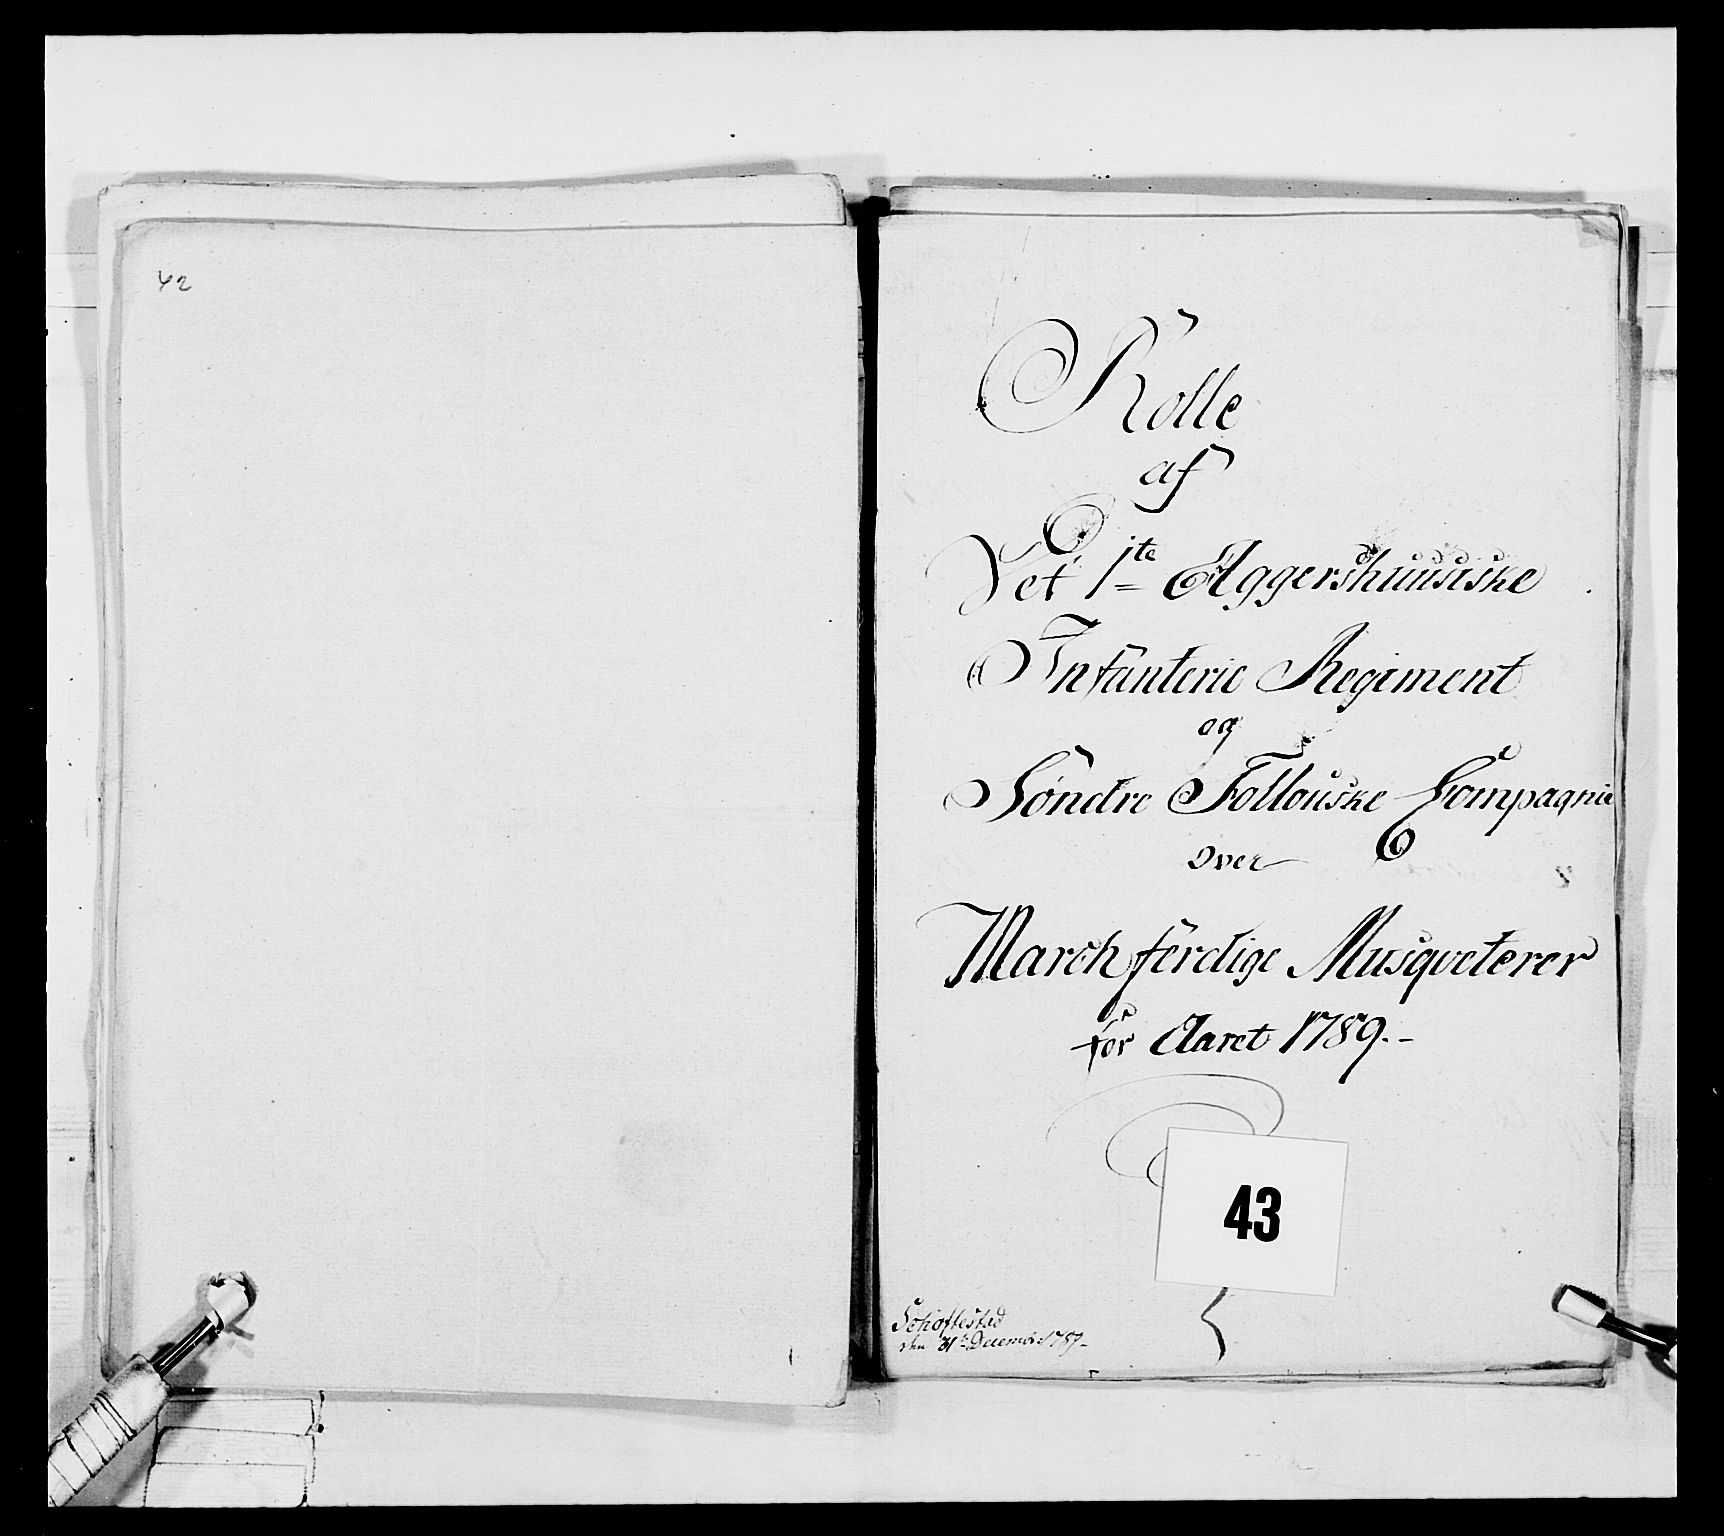 42
Rolle
af
Det 1te Aggershuusiske
Infanterie Regiment
og
Søndre Follouske Compagnie
over
March færdige Musqveterer
for Aaret 1789.-
43
den 31te Decembr 1789-